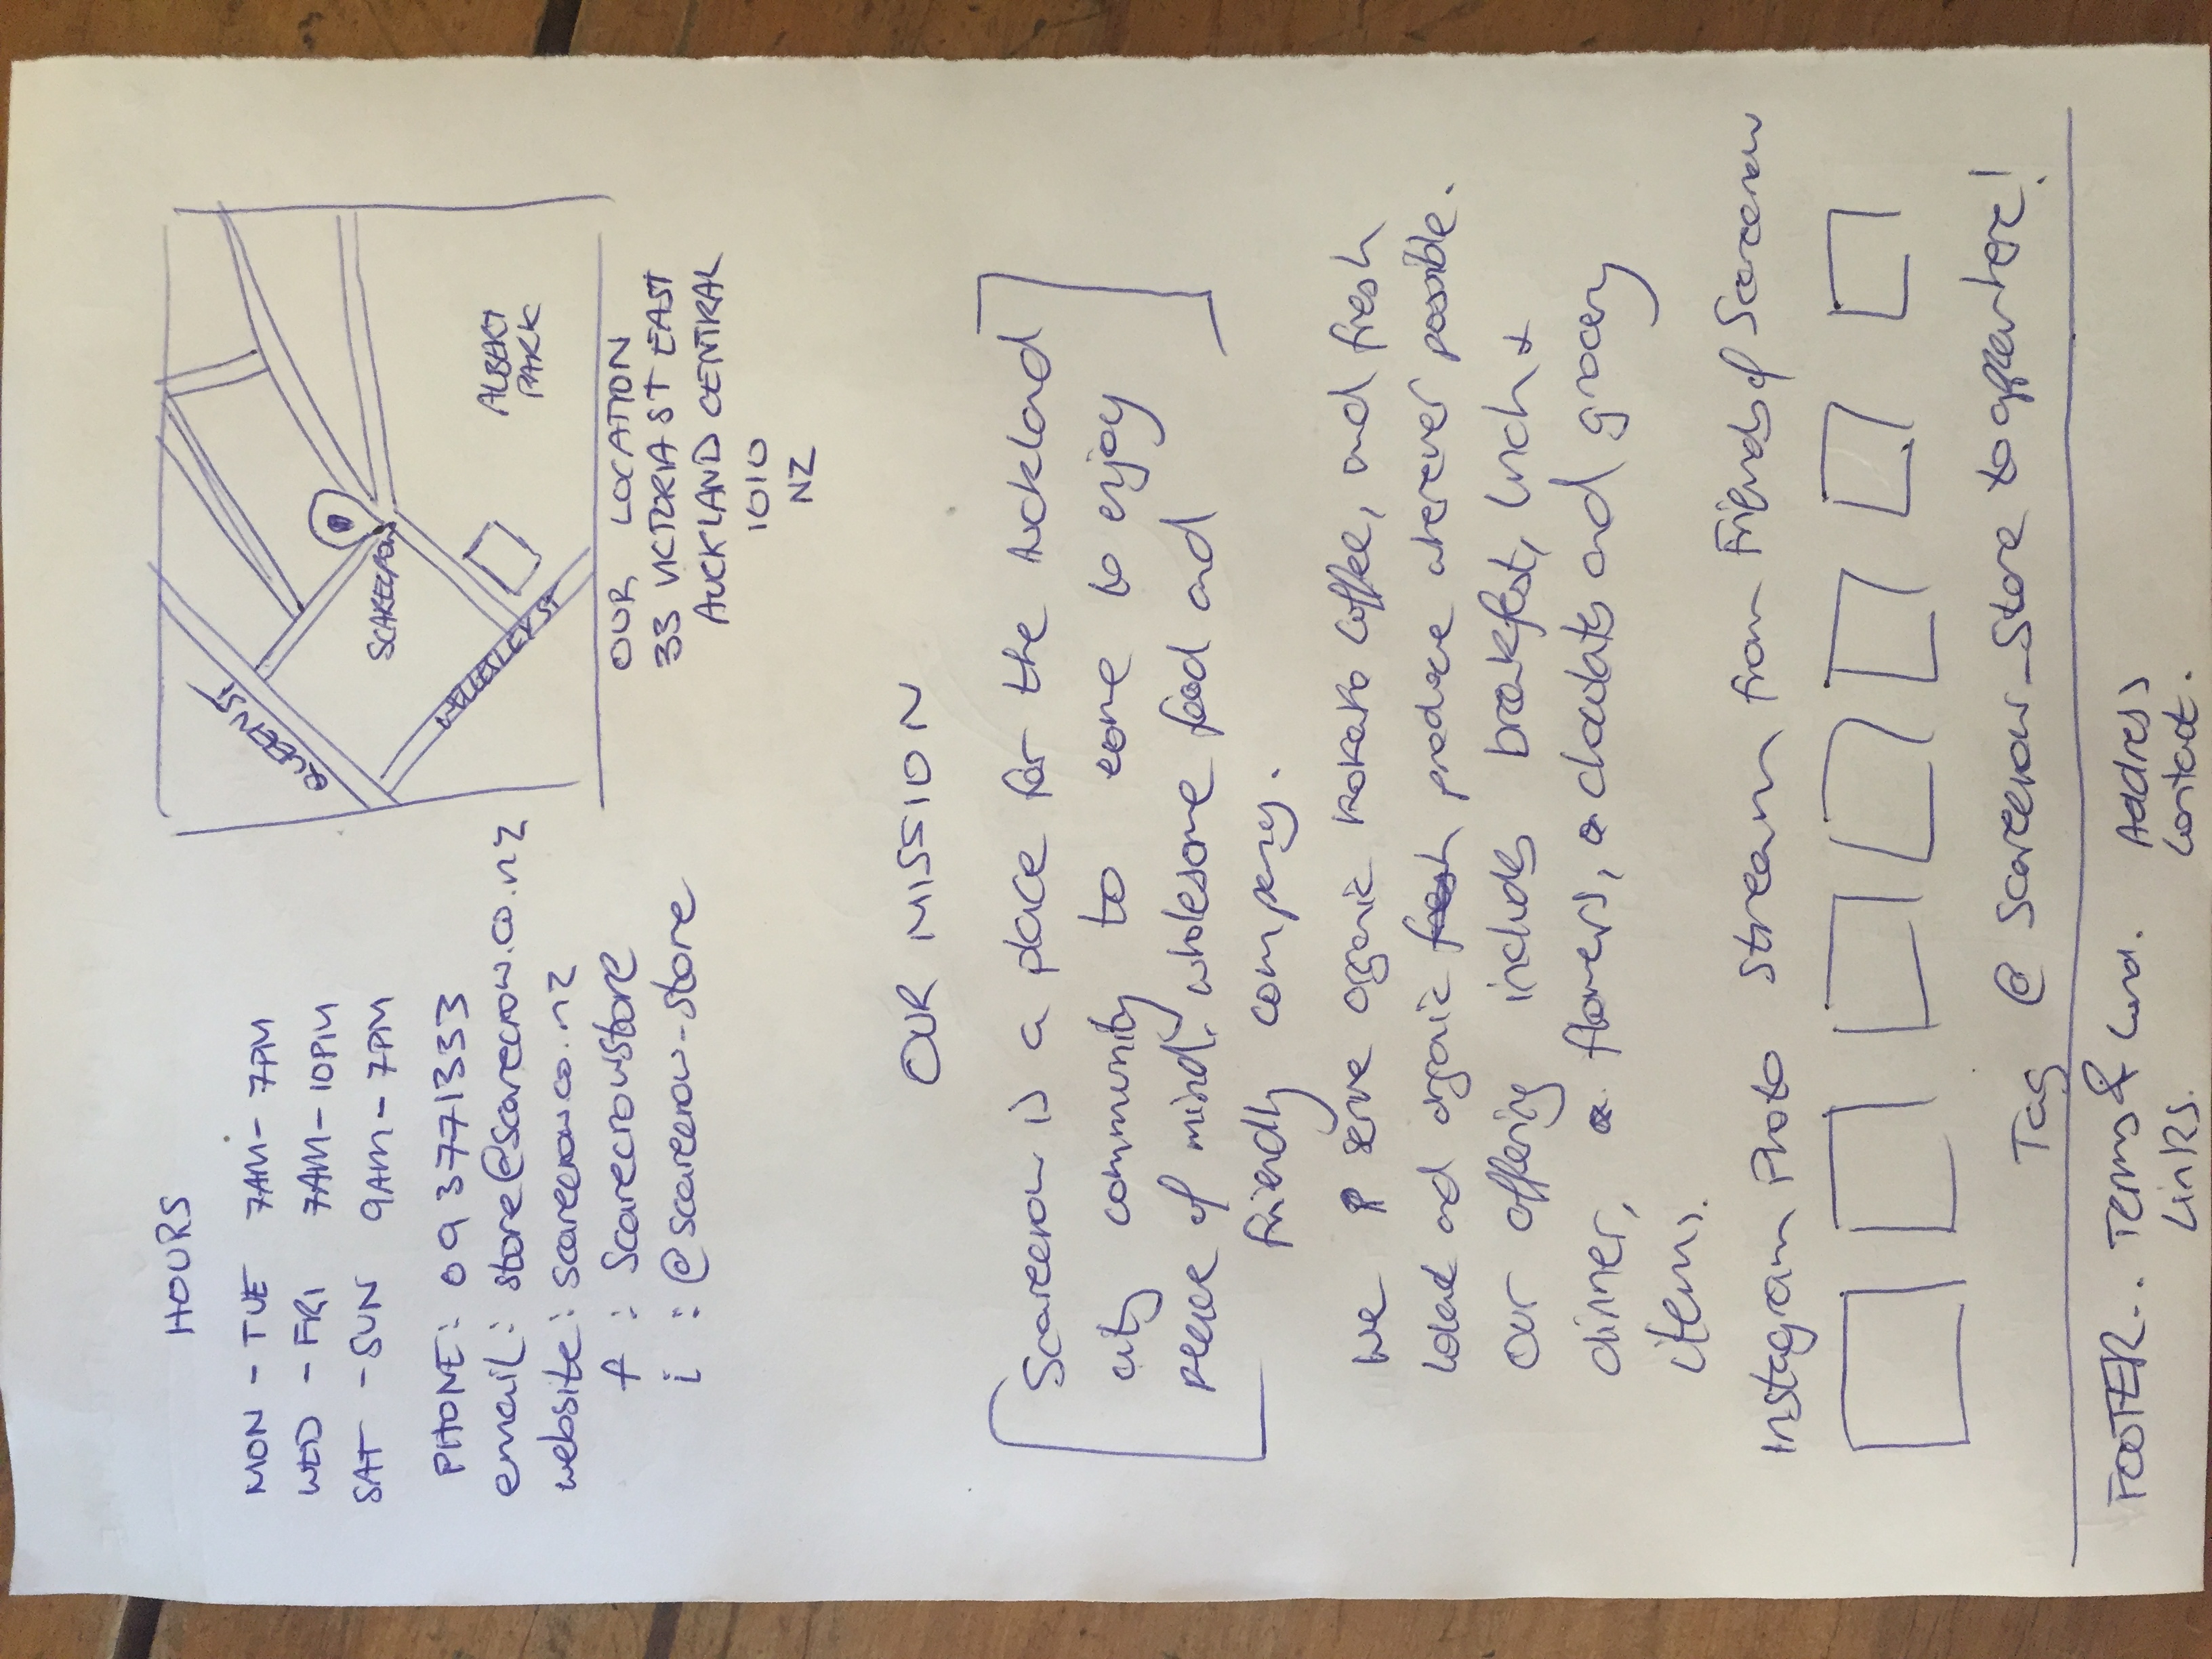 HOURS
MON - TUE 7AM - 7PM
WED - FRI 7AM - 10PM
SAT - SUN 9AM - 7PM
PHONE: 09 3771333
email: store@scarecrow.co.nz
website: scarecrow.co.nz
f : Scarecrowstore
i : @scarecrow-store
QUEEN ST
SCARECROW
WELLESLEY ST
ALBERT
PARK
OUR LOCATION
33 VICTORIA ST EAST
AUCKLAND CENTRAL
1010
NZ
OUR MISSION
Scarecrow is a place for the Aucklad
city community to come to enjoy
peace of mind, wholesome food and
friendly company.
we serve organic Kokako Coffee, and fresh
local and organic fresh produce wherever possible.
our offering includes breakfast, lunch +
dinner, flowers, chocolates and grocery
items.
Instagram Photo Stream from Friends of Scarecrow
Tag @ Scarecrow_Store to appear here!
FOOTER... Terms & Cond. Address
Links. Contact.